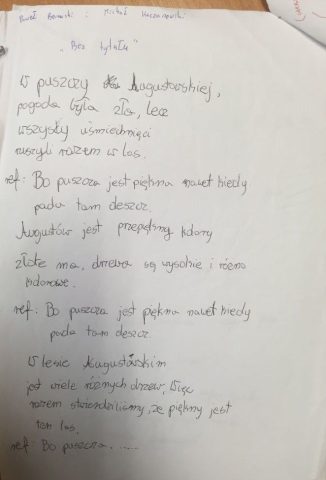 Paweł i Michał
"Bez tytułu"
W puszczy Augustowskiej,
pogoda była zła, lecz
wszyscy uśmiechnięci
ruszyli razem w las.
ref: Bo puszcza jest piękna nawet kiedy
pada tam deszcz.
Augustów jest przepiękny kolory
złote ma, drzewa są wysokie i różno
kolorowe.
ref: Bo puszcza jest piękna nawet kiedy
pada tam deszcz.
W lesie Augustowskim
jest wiele różnych drzew, Więc
razem stwierdziliśmy, że piękny jest
ten las.
ref: Bo puszcza......